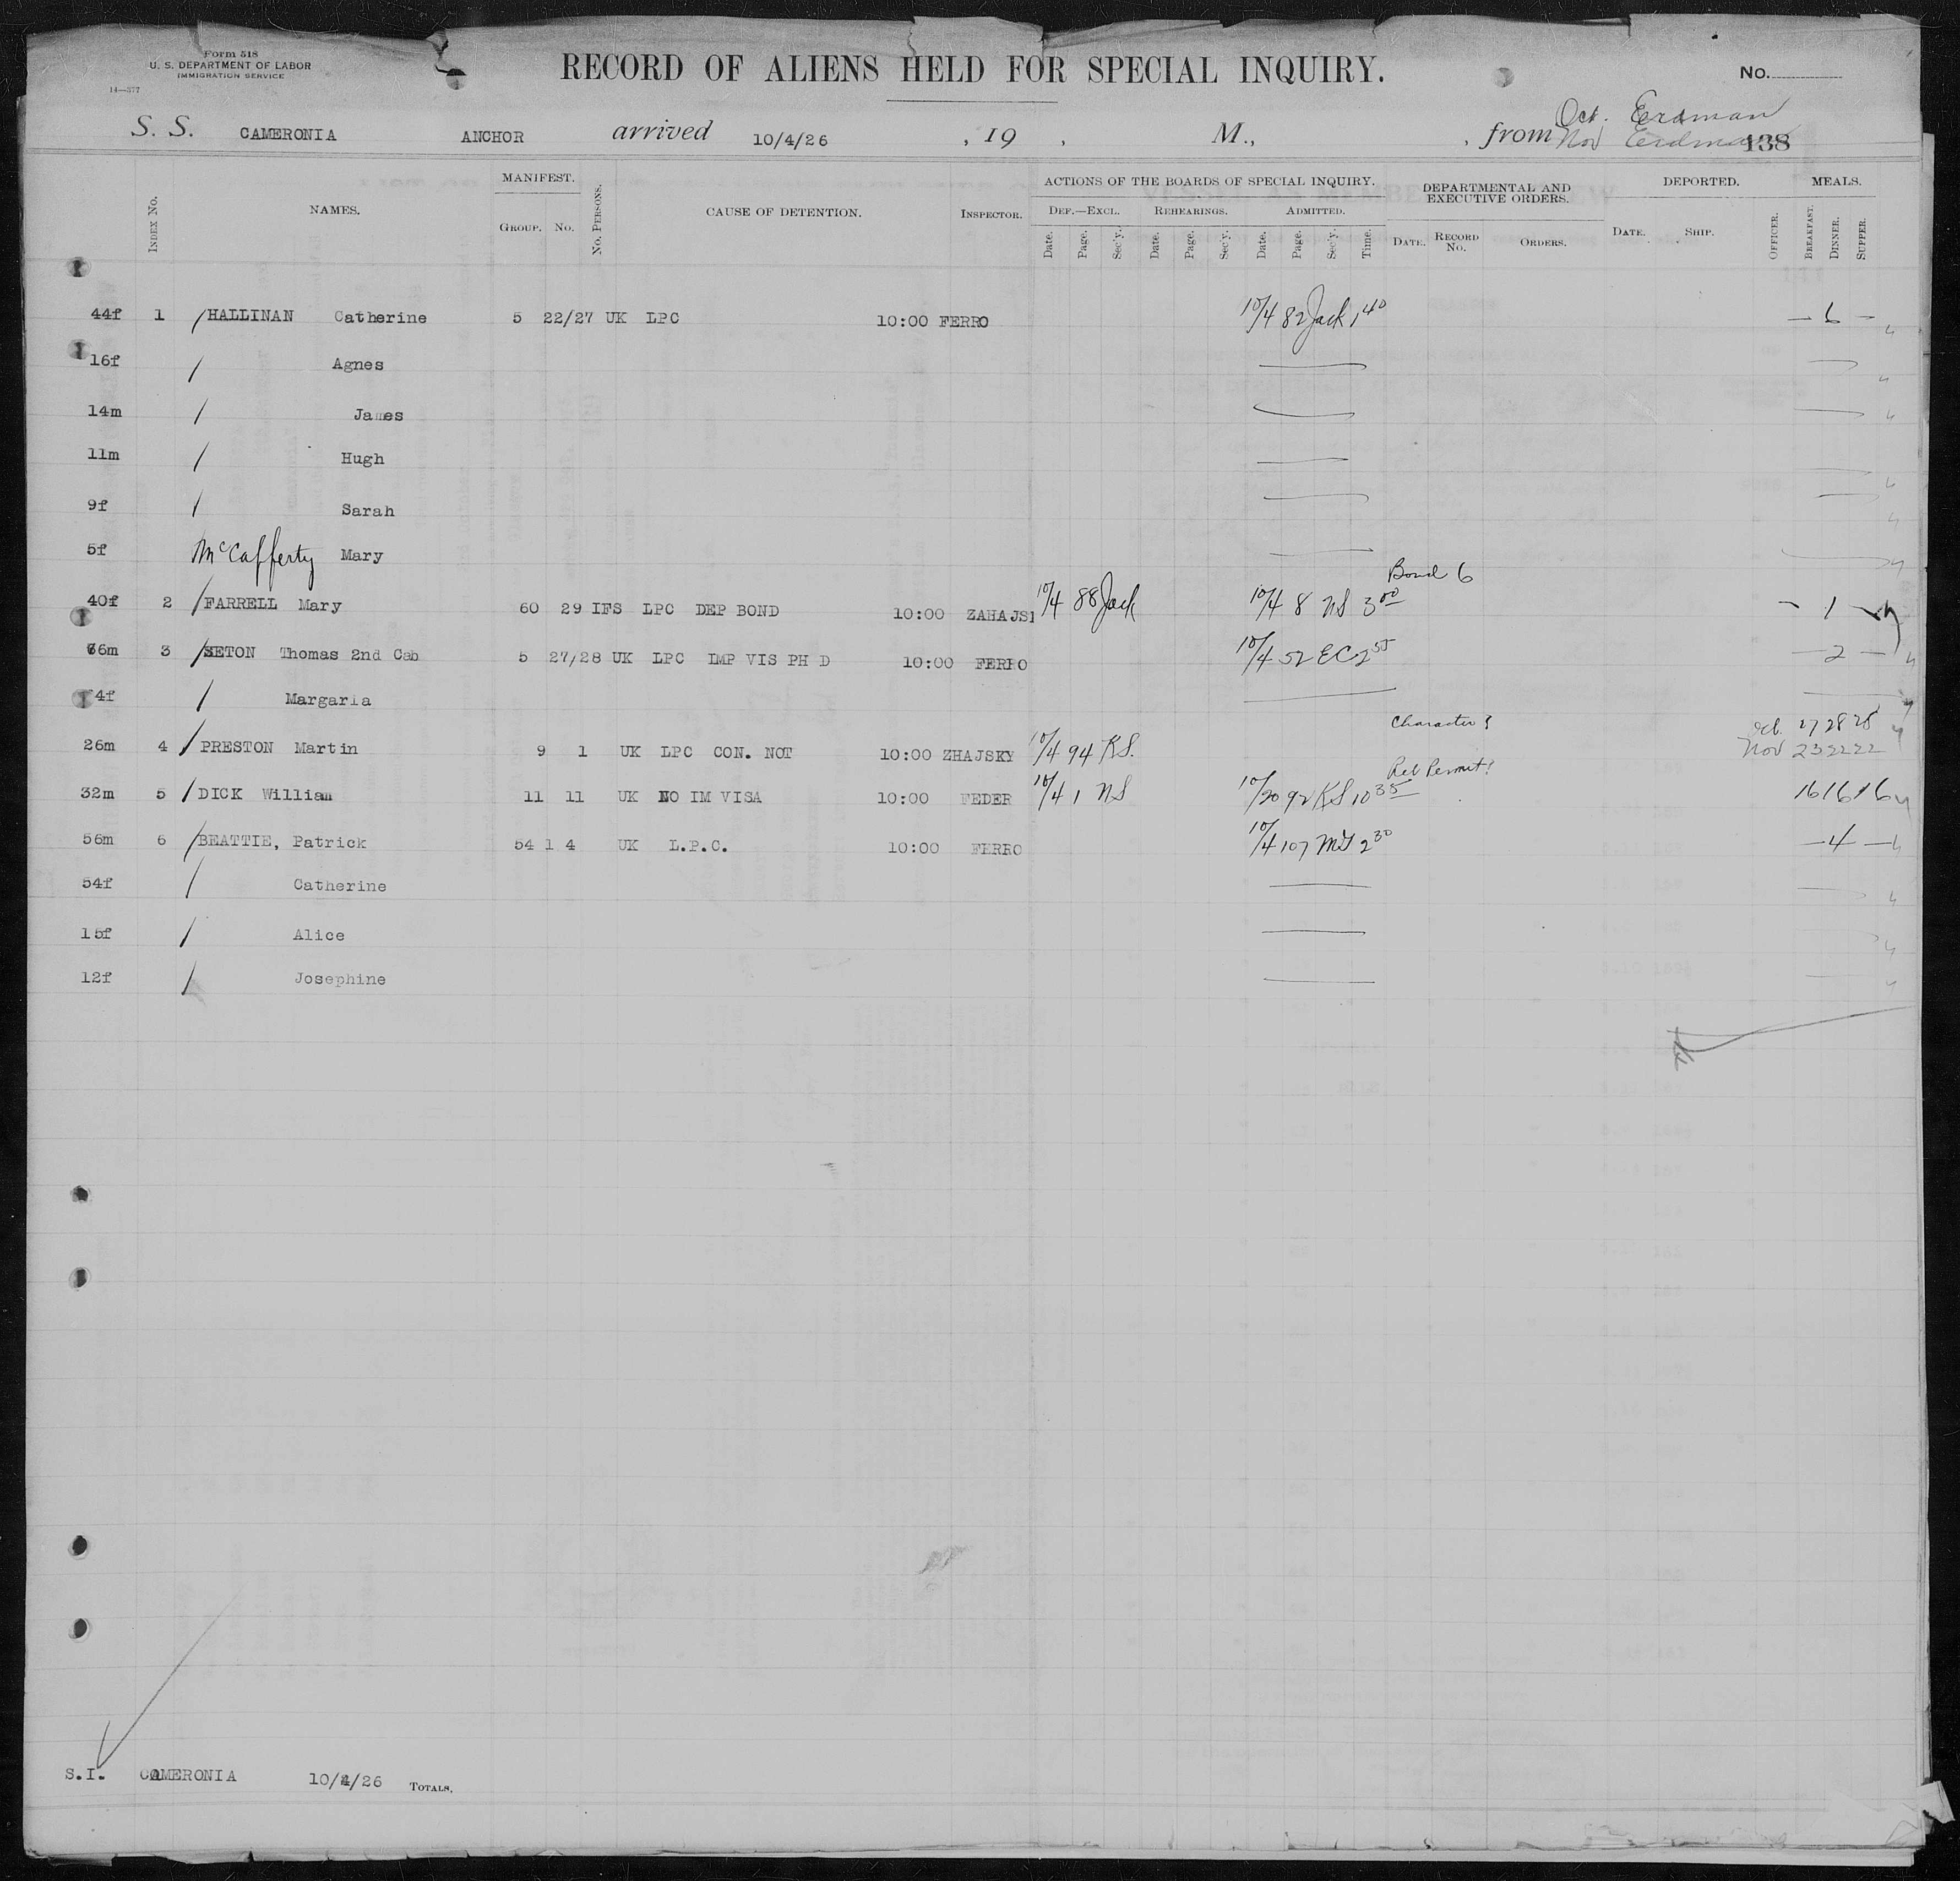 Form 518
U. S. DEPARTMENT OF LABOR
IMMIGRATION SERVICE
14—377
RECORD OF ALIENS HELD FOR SPECIAL INQUIRY.
No.
Oct. Erdman
S. S. CAMERONIA ANCHOR arrived 10/4/26 , 19 , M., , from Nov Erdman 138
INDEX No. NAMES. MANIFEST. GROUP. No. No. PERSONS. CAUSE OF DETENTION. INSPECTOR. ACTIONS OF THE BOARDS OF SPECIAL INQUIRY. DEPARTMENTAL AND EXECUTIVE ORDERS. DEPORTED. MEALS.
DEF.—EXCL. REHEARINGS. ADMITTED.
Date. Page. Sec'y. Date. Page. Sec'y. Date. Page. Sec'y. Time. DATE. RECORD No. ORDERS. DATE. SHIP. OFFICER. BREAKFAST. DINNER. SUPPER.
44f 1 / HALLINAN Catherine 5 22/27 UK LPC 10:00 FERRO 10/4 82 Jack 1 40 — 6 —
16f / Agnes
14m / James
11m / Hugh
9f / Sarah
5f McCafferty Mary
Bond 6
40f 2 / FARRELL Mary 60 29 IFS LPC DEP BOND 10:00 ZAHAJS 10/4 88 Jack 10/4 8 NS 3 00 — 1 —
3 / SETON Thomas 2nd Cab 5 27/28 UK LPC IMP VIS PH D 10:00 FERRO 10/4 52 EC 2 55 — 2 —
4f / Margaria
Character
26m 4 / PRESTON Martin 9 1 UK LPC CON. NOT 10:00 ZHAJSKY 10/4 94 KS. Oct. 27 28 28
Nov 23 22 22
Ret Permit
32m 5 / DICK William 11 11 UK NO IM VISA 10:00 FEDER 10/4 1 NS 10/20 92 KS 10 35 16 16 16
56m 6 / BEATTIE, Patrick 54 1 4 UK L.P.C. 10:00 FERRO 10/4 107 2 30 — 4 —
54f / Catherine
15f / Alice
12f / Josephine
S.I. CAMERONIA 10/4/26 TOTALS.